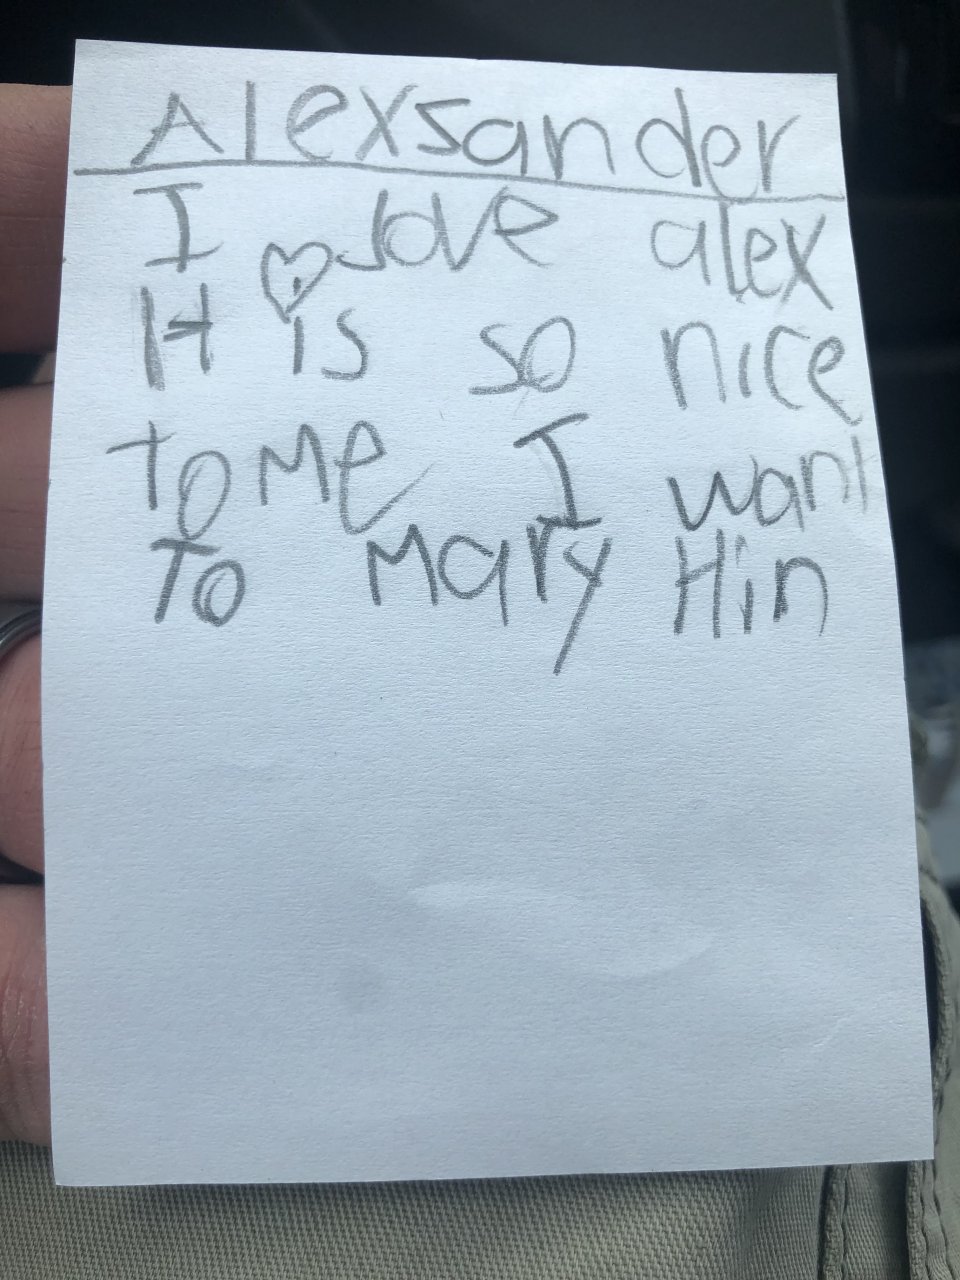 Alexsander
I love alex
H is so nice
to me I want
To Mary Hin